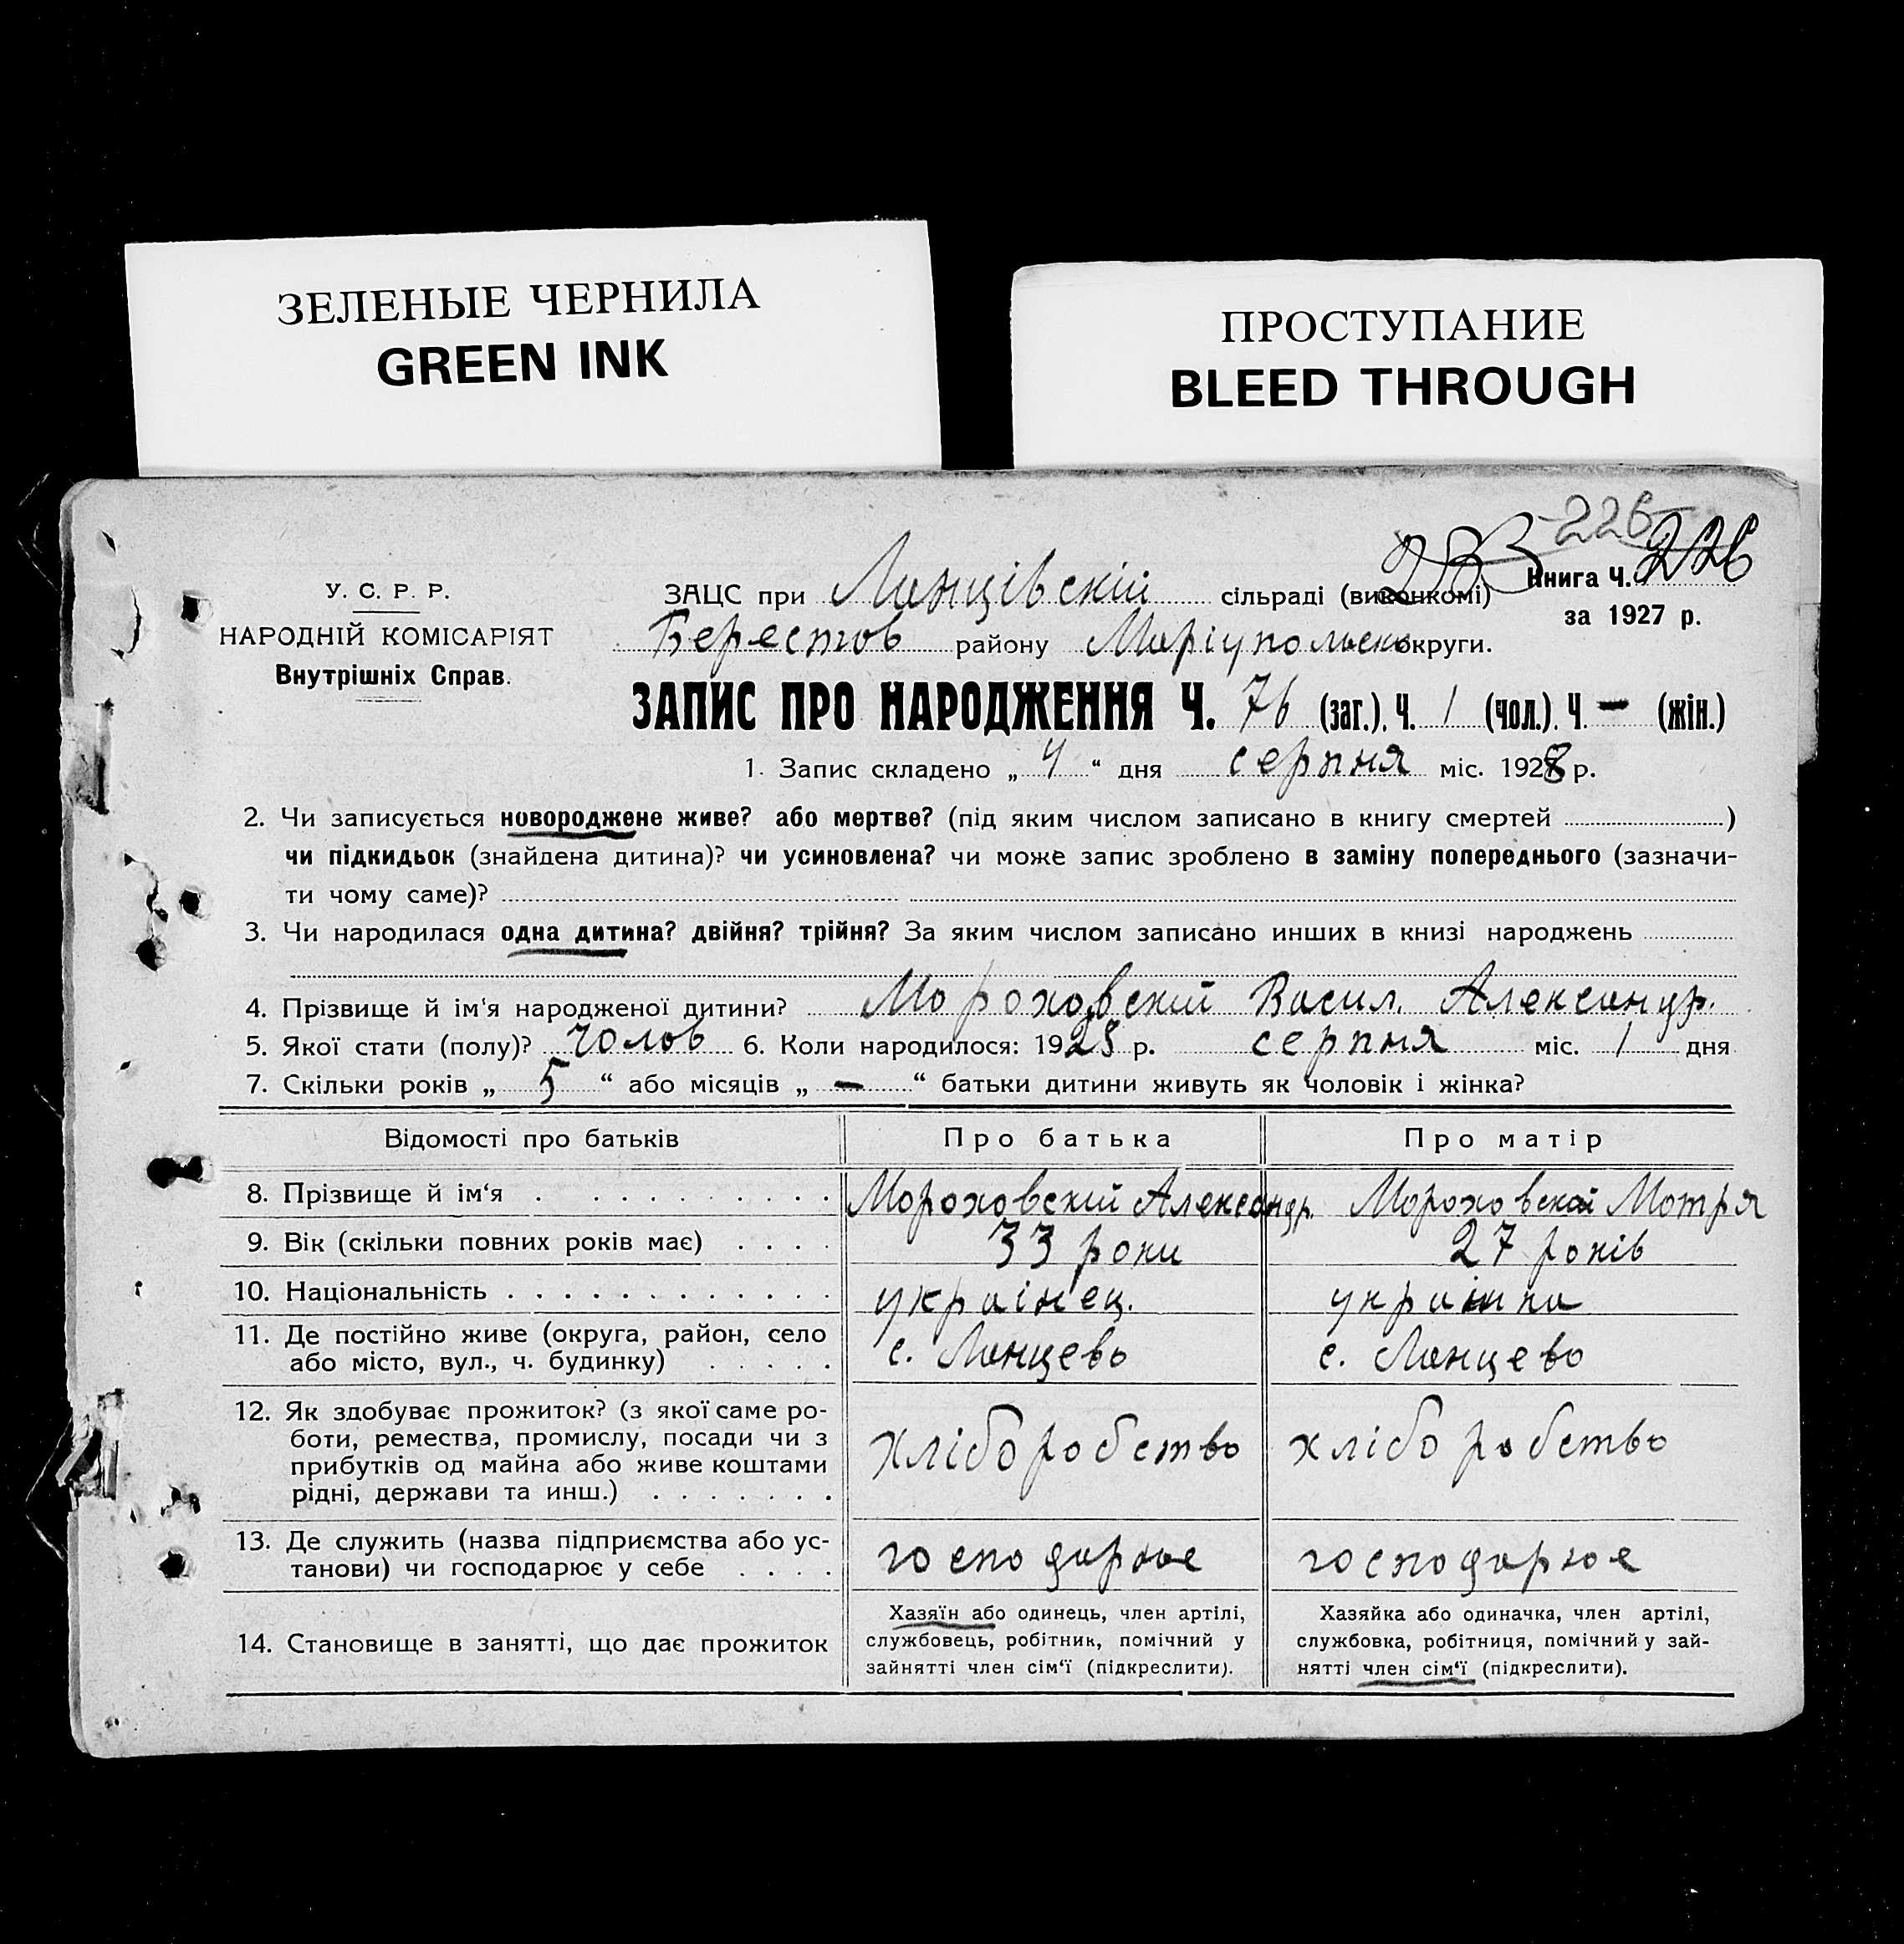 ЗЕЛЕНЫЕ ЧЕРНИЛА
GREEN INK
ПРОСТУПАНИЕ
BLEED THROUGH
226
У. С. Р. Р.
НАРОДНІЙ КОМІСАРІЯТ
Внутрішніх Справ.
ЗАЦС при Ланцівскій сільраді (виконкомі) Книга Ч. 226
за 1927 р.
Берестов району Маріупольськ округи.
ЗАПИС ПРО НАРОДЖЕННЯ Ч. 76 (заг.). Ч. 1 (чол.). Ч. — (жін.)
1. Запис складено „ 4 “ дня серпня міс. 1928 р.
2. Чи записується новороджене живе? або мертве? (під яким числом записано в книгу смертей )
чи підкидьок (знайдена дитина)? чи усиновлена? чи може запис зроблено в заміну попереднього (зазначи-
ти чому саме)?
3. Чи народилася одна дитина? двійня? трійня? За яким числом записано инших в книзі народжень
4. Прізвище й ім‘я народженої дитини? Мороховскій Васил. Александр.
5. Якої стати (полу)? чолов 6. Коли народилося: 1928 р. серпня міс. 1 дня
7. Скільки років „ 5 “ або місяців „ — “ батьки дитини живуть як чоловік і жінка?
Відомості про батьків Про батька Про матір
8. Прізвище й ім‘я Мороховскій Александр. Мороховскай Мотря
9. Вік (скільки повних років має) 33 роки 27 років
10. Національність украінец. украінка
11. Де постійно живе (округа, район, село
або місто, вул., ч. будинку) с. Ланцево с. Ланцево
12. Як здобуває прожиток? (з якої саме ро-
боти, ремества, промислу, посади чи з
прибутків од майна або живе коштами
рідні, держави та инш.) хліборобство хліборобство
13. Де служить (назва підприємства або ус-
танови) чи господарює у себе господарює господарює
14. Становище в занятті, що дає прожиток
Хазяїн або одинець, член артілі,
службовець, робітник, помічний у
зайнятті член сім‘ї (підкреслити).
Хазяйка або одиначка, член артілі,
службовка, робітниця, помічний у зай-
нятті член сім‘ї (підкреслити).